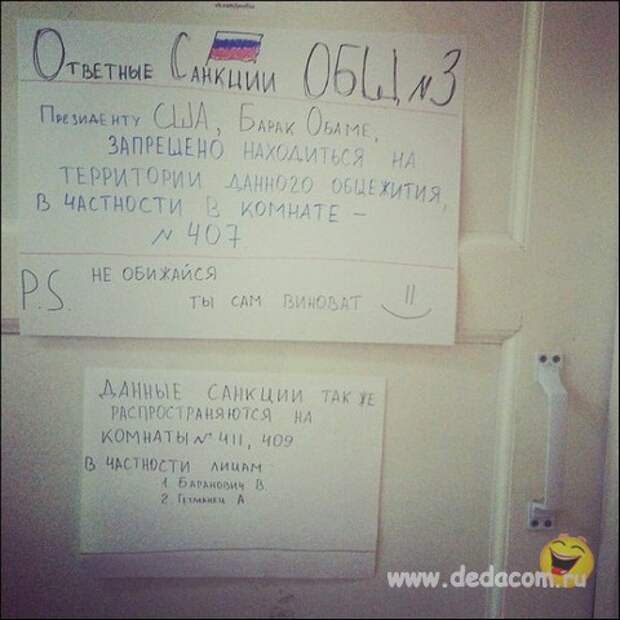 Ответные Санкции ОБЩ №3
Президенту США, Барак Обаме,
запрещено находиться на
территории данного общежития,
в частности в комнате –
№ 407
P.S. не обижайся
ты сам виноват
Данные санкции так же
распространяются на
комнаты № 411, 409
в частности лицам
1. Баранович В.
2. Гетманец А
www.dedacom.ru